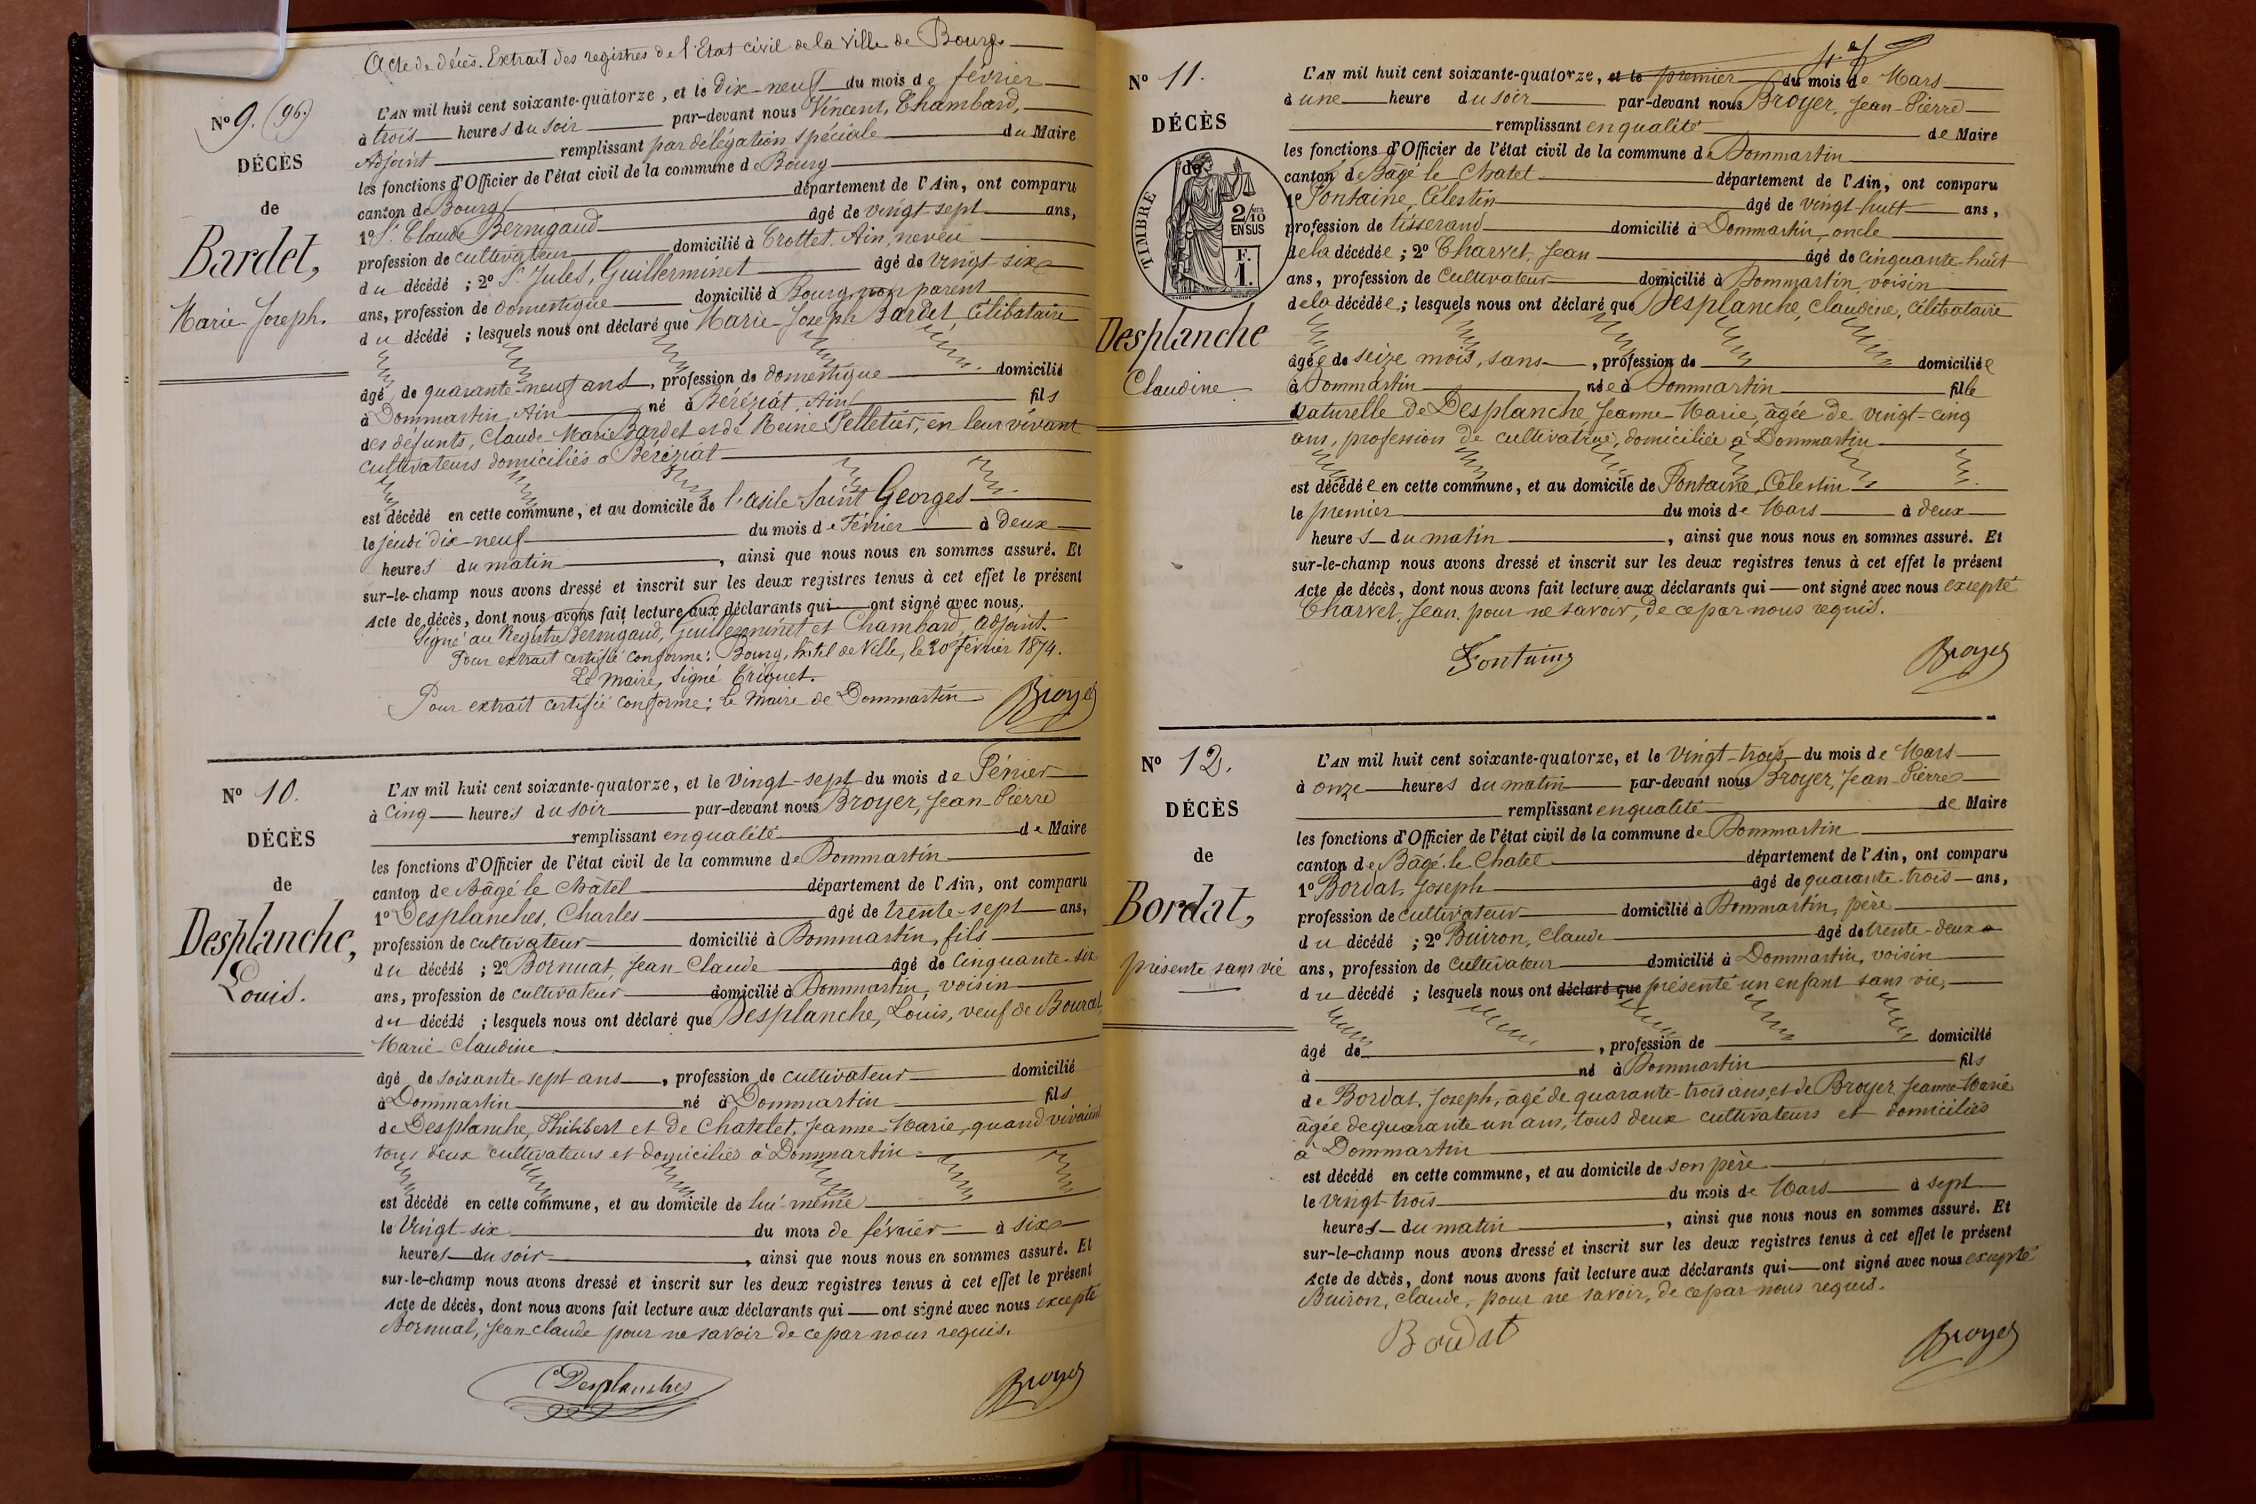 Acte de décès. Extrait des registres de l'Etat civil de la ville de Bourg
N° 9. (96.)
DÉCÈS
de
Bardet,
Marie Joseph.
L'AN mil huit cent soixante-quatorze, et le dix-neuf du mois de février
à trois heures du soir par-devant nous Vincent, Chambard,
Adjoint remplissant par délégation spéciale du Maire
les fonctions d'Officier de l'état civil de la commune de Bourg
canton de Bourg département de l'Ain, ont comparu
1° St Claude Bernigaud âgé de vingt-sept ans,
profession de cultivateur domicilié à Crottet, Ain, neveu
du décédé ; 2° St Jules, Guillerminet âgé de vingt six
ans, profession de domestique domicilié à Bourg, non parent
du décédé ; lesquels nous ont déclaré que Marie Joseph Bardet, célibataire
âgé de quarante-neuf ans, profession de domestique domicilié
à Dommartin, Ain né à Béréziat, Ain fils
des défunts, Claude Marie Bardet et de Reine Pelletier, en leur vivant
cultivateurs domiciliés à Béréziat
est décédé en cette commune, et au domicile de l'asile Saint Georges
le jeudi dix-neuf du mois de Février à deux
heures du matin, ainsi que nous nous en sommes assuré. Et
sur-le-champ nous avons dressé et inscrit sur les deux registres tenus à cet effet le présent
Acte de décès, dont nous avons fait lecture aux déclarants qui ont signé avec nous.
Signé au Registre Bernigaud, Guillerminet et Chambard, adjoint.
Pour extrait certifié conforme: Bourg, hôtel de Ville, le 20 février 1874.
Le Maire, Signé
Pour extrait certifié conforme: le Maire de Dommartin Broyer
N° 10.
DÉCÈS
de
Desplanche,
Louis.
L'AN mil huit cent soixante-quatorze, et le vingt-sept du mois de Février
à cinq heures du soir par-devant nous Broyer, Jean-Pierre
remplissant en qualité de Maire
les fonctions d'Officier de l'état civil de la commune de Dommartin
canton de Bâgé le Châtel département de l'Ain, ont comparu
1° Desplanches, Charles âgé de trente-sept ans,
profession de cultivateur domicilié à Dommartin, fils
du décédé ; 2° Bornuat, Jean-Claude âgé de cinquante-six
ans, profession de cultivateur domicilié à Dommartin, voisin
du décédé ; lesquels nous ont déclaré que Desplanche, Louis, veuf de
Marie-Claudine
âgé de soixante-sept ans, profession de cultivateur domicilié
à Dommartin né à Dommartin fils
de Desplanche, Philibert et de Chatelet, Jeanne-Marie, quand vivaient
tous deux cultivateurs et domiciliés à Dommartin
est décédé en cette commune, et au domicile de lui-même
le Vingt-six du mois de février à six
heures du soir, ainsi que nous nous en sommes assuré. Et
sur-le-champ nous avons dressé et inscrit sur les deux registres tenus à cet effet le présent
Acte de décès, dont nous avons fait lecture aux déclarants qui ont signé avec nous excepté
Bornuat, Jean-Claude pour ne savoir de ce par nous requis.
C Desplanches Broyer
N° 11.
DÉCÈS
de
TIMBRE
2/10
EN SUS
F.
1.
Desplanche
Claudine
L'AN mil huit cent soixante-quatorze, et le premier du mois de Mars
à une heure du soir par-devant nous Broyer, Jean-Pierre
remplissant en qualité de Maire
les fonctions d'Officier de l'état civil de la commune de Dommartin
canton de Bâgé le Chatel département de l'Ain, ont comparu
1° Fontaine, Célestin âgé de vingt-huit ans,
profession de tisserand domicilié à Dommartin, oncle
de la décédée ; 2° Charvet, Jean âgé de cinquante-huit
ans, profession de Cultivateur domicilié à Dommartin, voisin
de la décédée ; lesquels nous ont déclaré que Desplanche, Claudine, célibataire
âgée de seize mois, sans, profession de domiciliée
à Dommartin née à Dommartin fille
naturelle de Desplanche, Jeanne-Marie, âgée de vingt-cinq
ans, profession de cultivatrice, domiciliée à Dommartin
est décédée en cette commune, et au domicile de Fontaine, Célestin
le premier du mois de Mars à deux
heures du matin, ainsi que nous nous en sommes assuré. Et
sur-le-champ nous avons dressé et inscrit sur les deux registres tenus à cet effet le présent
Acte de décès, dont nous avons fait lecture aux déclarants qui ont signé avec nous excepté
Charvet, Jean, pour ne savoir, de ce par nous requis.
Fontaine Broyer
N° 12.
DÉCÈS
de
Bordat,
présenté sans vie
L'AN mil huit cent soixante-quatorze, et le vingt-trois du mois de Mars
à onze heures du matin par-devant nous Broyer, Jean-Pierre
remplissant en qualité de Maire
les fonctions d'Officier de l'état civil de la commune de Dommartin
canton de Bâgé-le-Chatel département de l'Ain, ont comparu
1° Bordat, Joseph âgé de quarante-trois ans,
profession de cultivateur domicilié à Dommartin, père
du décédé ; 2° Buiron, Claude âgé de trente-deux
ans, profession de cultivateur domicilié à Dommartin, voisin
du décédé ; lesquels nous ont déclaré que présenté un enfant sans vie,
âgé de, profession de domicilié
à né à Dommartin fils
de Bordat, Joseph, âgé de quarante-trois ans, et de Broyer, Jeanne-Marie
âgée de quarante un ans, tous deux cultivateurs et domiciliés
à Dommartin
est décédé en cette commune, et au domicile de son père
le vingt-trois du mois de Mars à sept
heures du matin, ainsi que nous nous en sommes assuré. Et
sur-le-champ nous avons dressé et inscrit sur les deux registres tenus à cet effet le présent
Acte de décès, dont nous avons fait lecture aux déclarants qui ont signé avec nous excepté
Buiron, Claude, pour ne savoir, de ce par nous requis.
Bordat Broyer